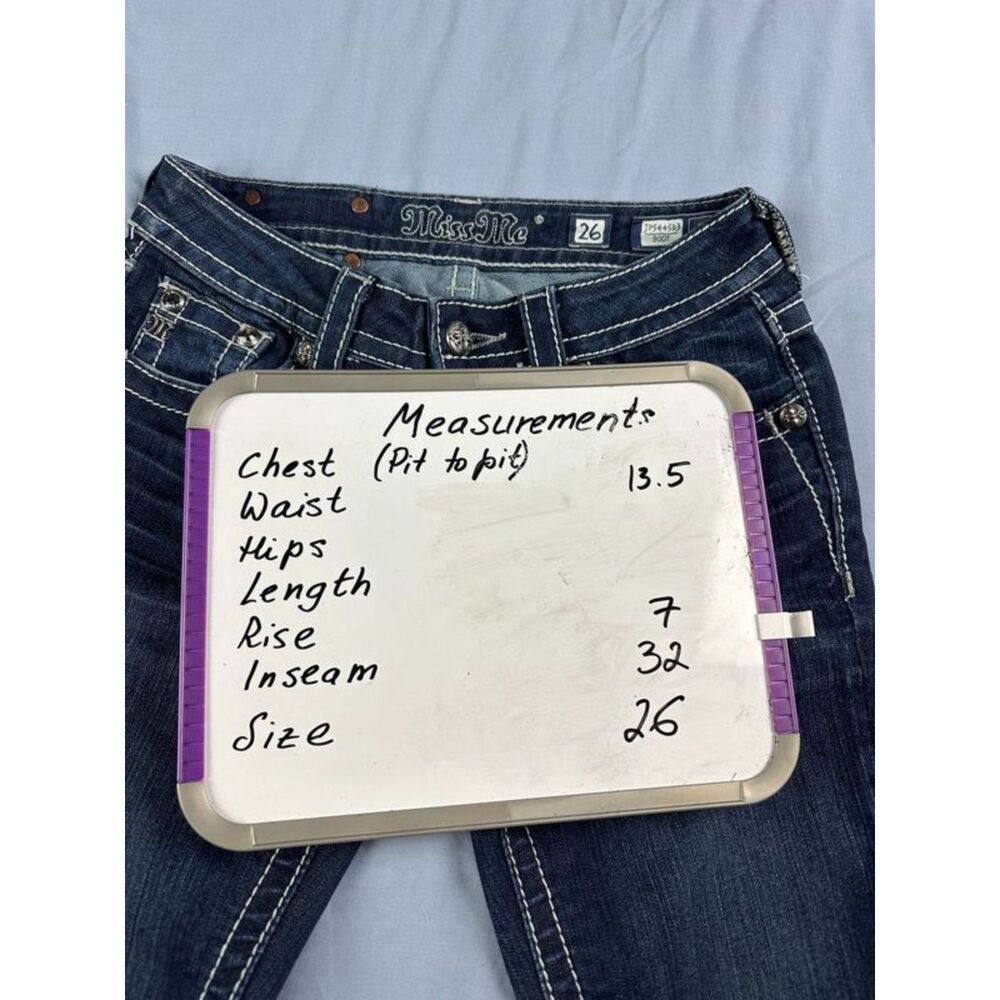 Miss Me
26
JP5445B3
BOOT
M
Measurements
Chest (Pit to pit)
Waist 13.5
Hips
Length
Rise 7
Inseam 32
Size 26